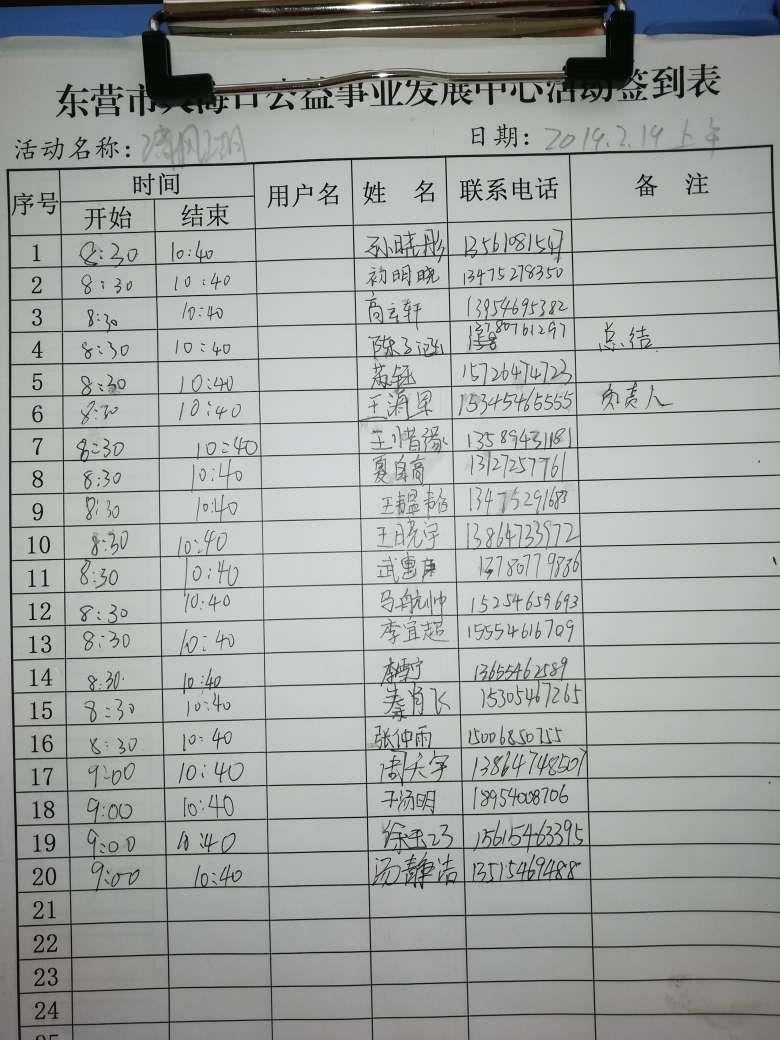 东营市 海口公益事业发展中心活动签到表
活动名称: 日期: 2019.2.19 上午
序号 时间 用户名 姓名 联系电话 备注
开始 结束
1 8:30 10:40 孙晓彤 13561081547
2 8:30 10:40 初明晓 13475278350
3 8:30 10:40 高云轩 13954695382
4 8:30 10:40 陈子涵 13780761297 总结
5 8:30 10:40 苏钰 15726474723
6 8:30 10:40 王 15345465555 负责人
7 8:30 10:40 王惜缘 13589431181
8 8:30 10:40 夏自高 13127257761
9 8:30 10:40 王韫 13475291683
10 8:30 10:40 王晓宇 13864733972
11 8:30 10:40 武惠 13780779886
12 8:30 10:40 马航帅 15254659693
13 8:30 10:40 李宜超 15554616709
14 8:30 10:40 李 13655462589
15 8:30 10:40 秦肖飞 15305467265
16 8:30 10:40 张仲雨 15006850755
17 9:00 10:40 周天宇 13864748507
18 9:00 10:40 于汤明 18954008706
19 9:00 10:40 徐 15615463395
20 9:00 10:40 汤静洁 13515469488
21
22
23
24